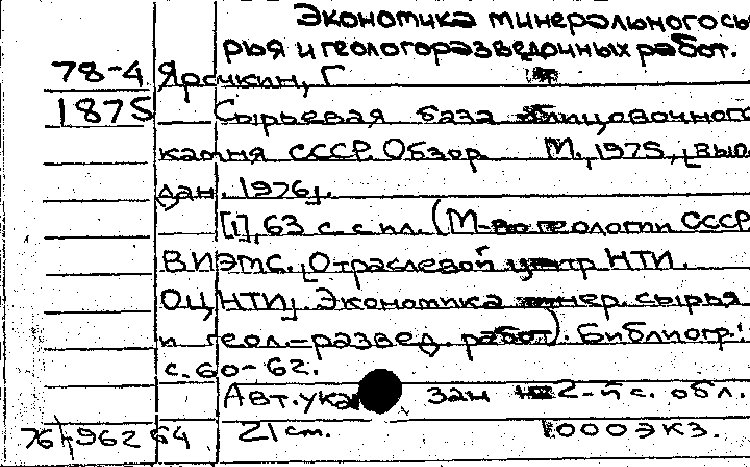 Экономика минерального сы
рья и геологоразведочных работ.
78-4 Ярочкин, Г
1875 Сырьевая база облицовочного
камня СССР. Обзор М., 1975, [вып.
дан. 1976].
[1], 63 с. с ил. (М-во геологии СССР
ВИЭМС. [Отраслевой центр НТИ.
ОЦНТИ]. Экономика минер. сырья
и геол.-развед. работ). Библиогр.:
с. 60-62.
Авт. ука зан на 2-й с. обл.
76-962 64 21 см. 1000 экз.